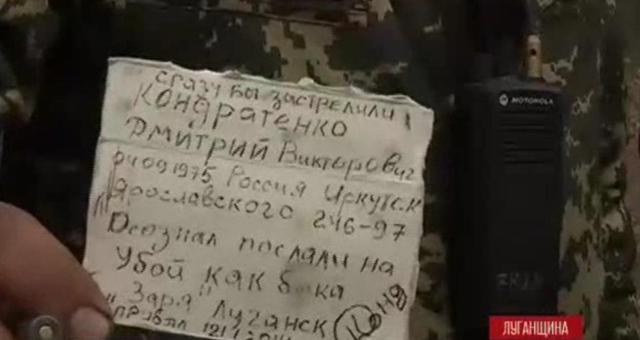 сразу бы застрелили
Кондратенко
Дмитрий Викторович
04091975 Россия Иркутск
Ярославского 246-97
Осознал послали на
Убой как быка
"Заря" Луганск
Коня
MOTOROLA
ЛУГАНЩИНА